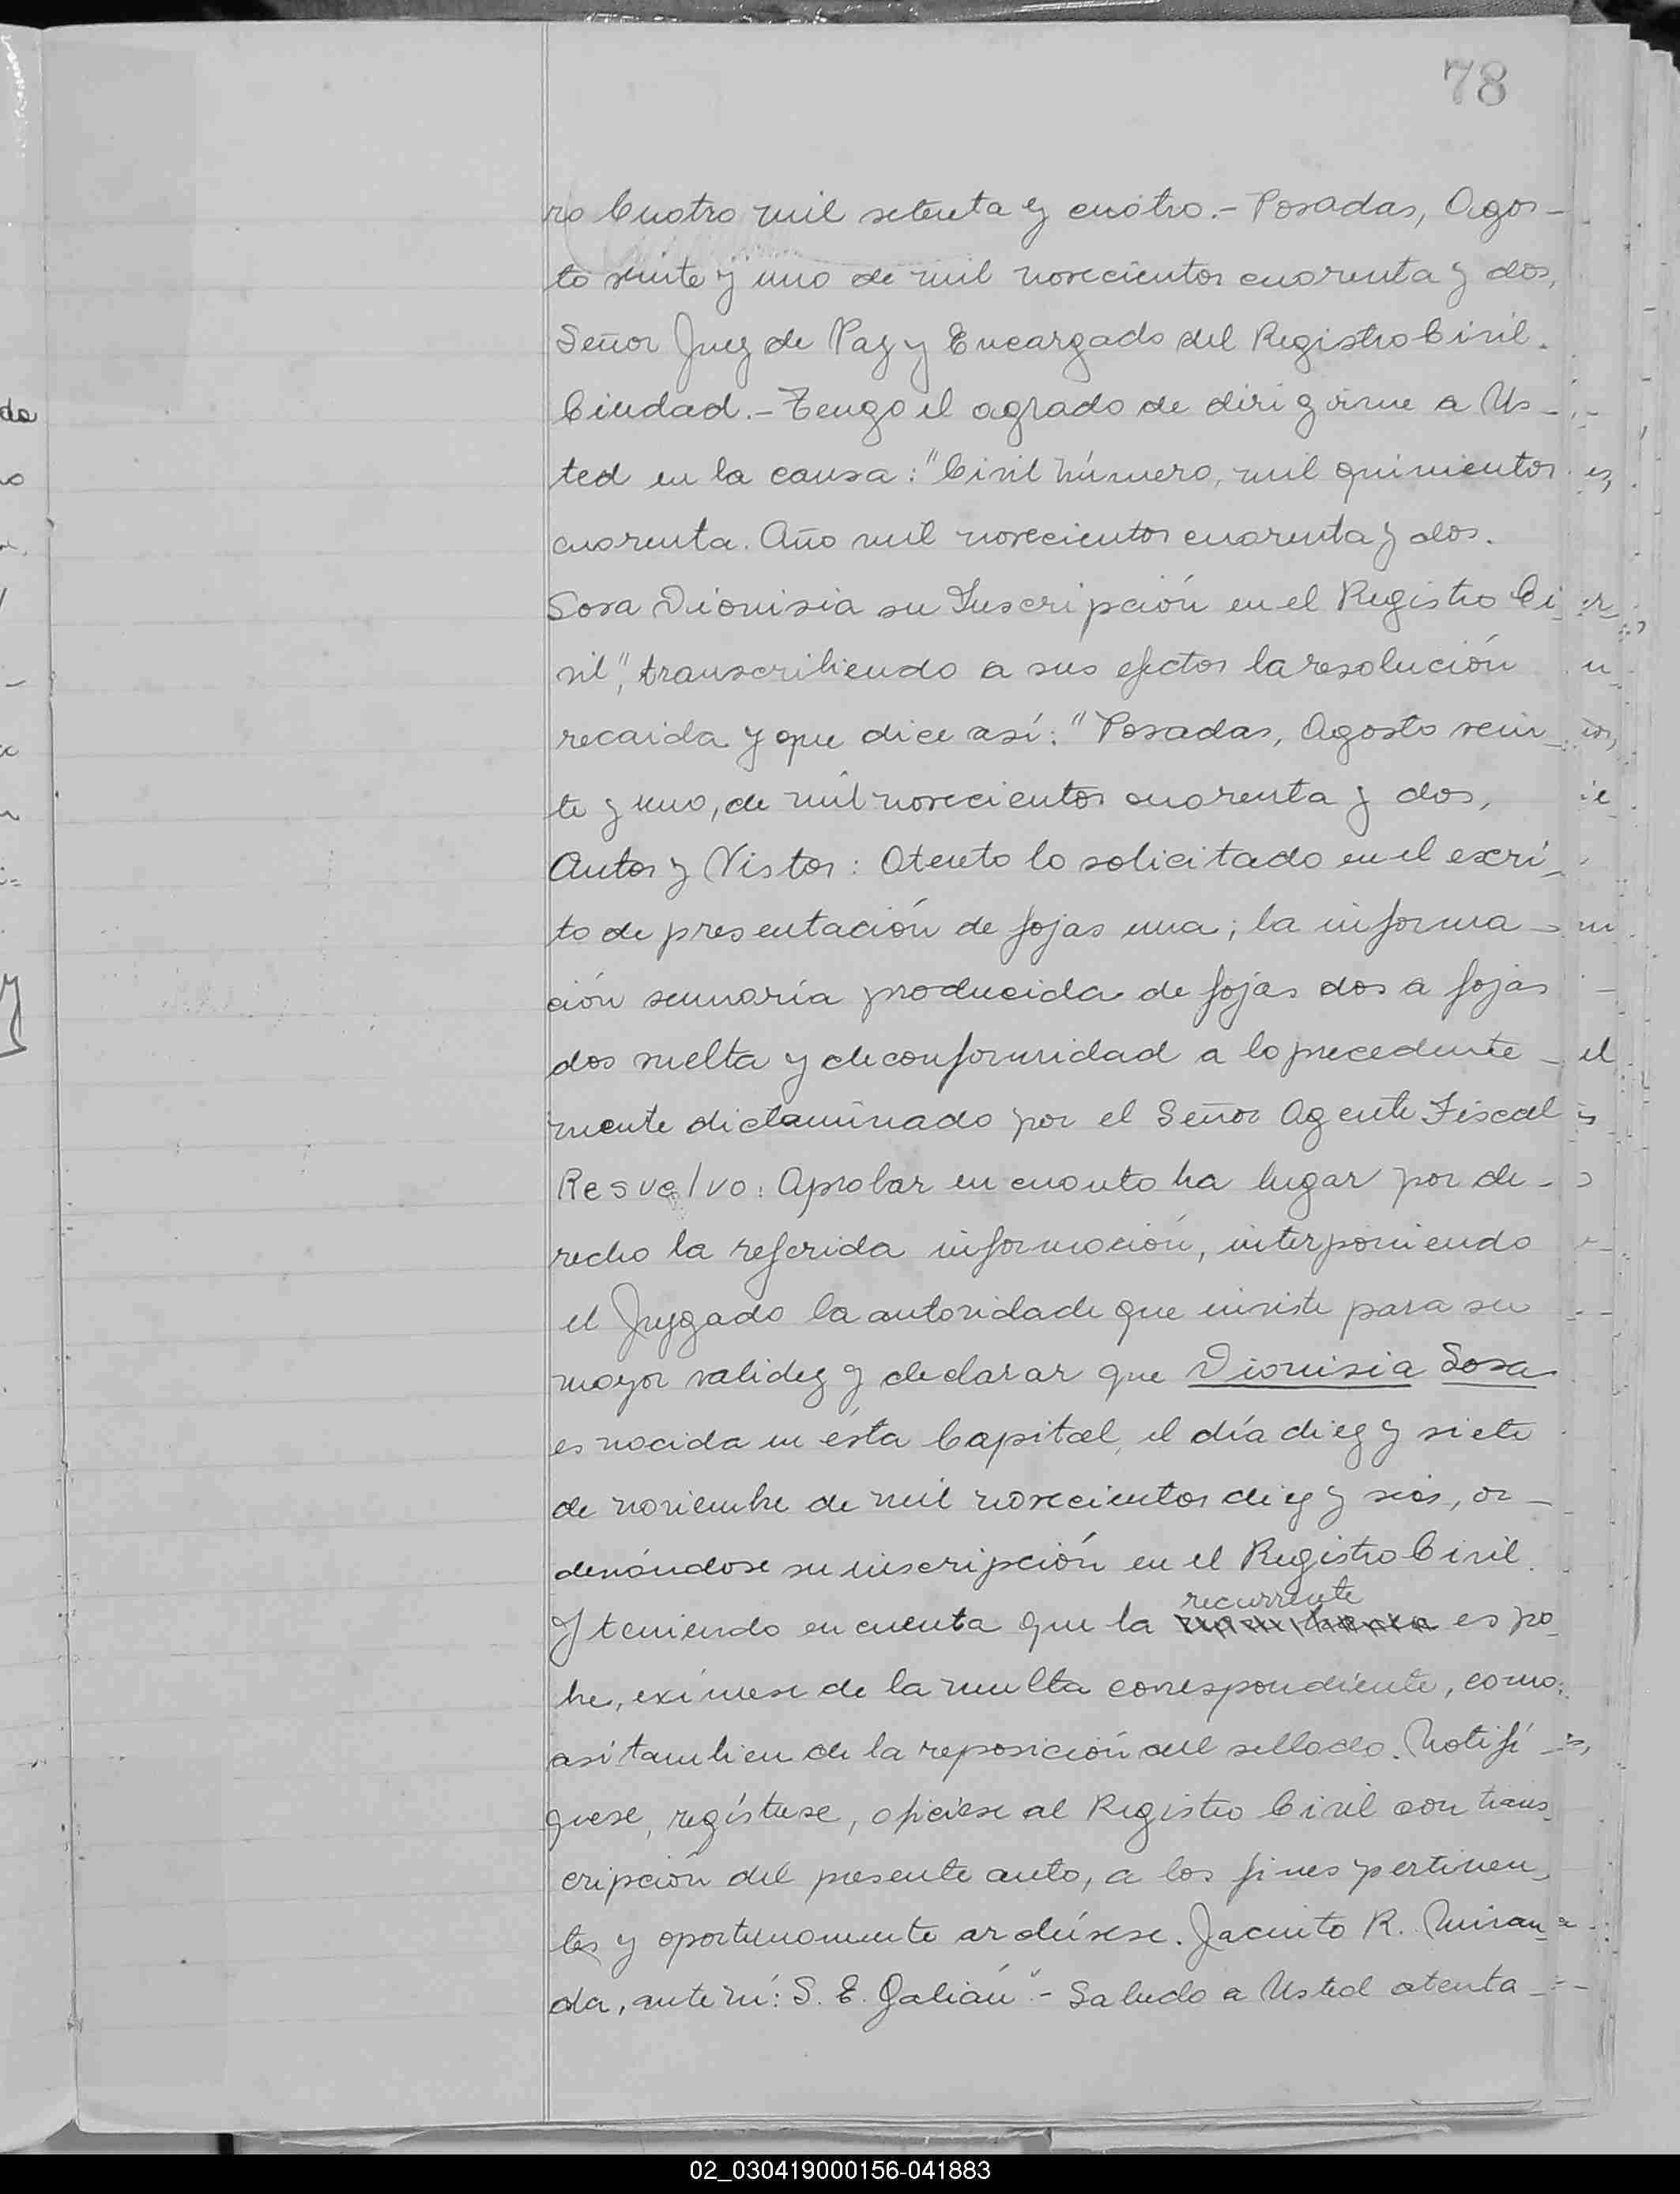 78
ro Cuatro mil setenta y cuatro.- Posadas, Agos-
to veinte y uno de mil novecientos cuarenta y dos,
Señor Juez de Paz y Encargado del Registro Civil.
Ciudad.- Tengo el agrado de dirigirme a Us-
ted en la causa: "Civil número, mil quinientos
cuarenta. Año mil novecientos cuarenta y dos.
Sosa Dionisia su Inscripción en el Registro Ci-
vil", transcribiendo a sus efectos la resolución
recaida y que dice así: "Posadas, Agosto vein-
te y uno, de mil novecientos cuarenta y dos,
Autos y Vistos: Atento lo solicitado en el escri-
to de presentación de fojas una; la informa-
ción sumaria producida de fojas dos a fojas
dos vuelta y de conformidad a lo precedente-
mente dictaminado por el Señor Agente Fiscal
Resuelvo: Aprobar en cuanto ha lugar por de-
recho la referida información, interponiendo
el Juzgado la autoridad de que inviste para su
mayor validez y declarar que Dionisia Sosa
es nacida en ésta Capital, el día diez y siete
de noviembre de mil novecientos diez y seis, or-
denándose su inscripción en el Registro Civil.
Y teniendo en cuenta que la recurrente es po-
bre, exímese de la multa correspondiente, como
así tambien de la reposición del sellado. Notifí-
quese, regístrese, ofíciese al Registro Civil con trans-
cripción del presente auto, a los fines pertinen-
tes y oportunamente archívese. Jacinto R. Miran-
da, ante mí: S. E. Galián".- Saludo a Usted atenta-
02_030419000156-041883